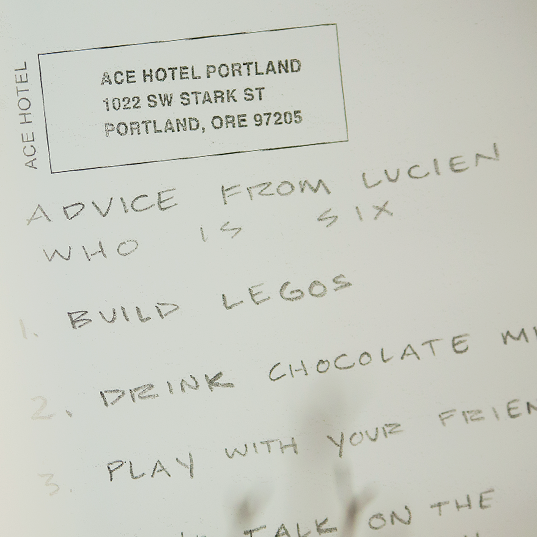 ACE HOTEL
ACE HOTEL PORTLAND
1022 SW STARK ST
PORTLAND, ORE 97205
ADVICE FROM LUCIEN
WHO IS SIX
1. BUILD LEGOS
2. DRINK CHOCOLATE
3. PLAY WITH YOUR
TALK ON THE